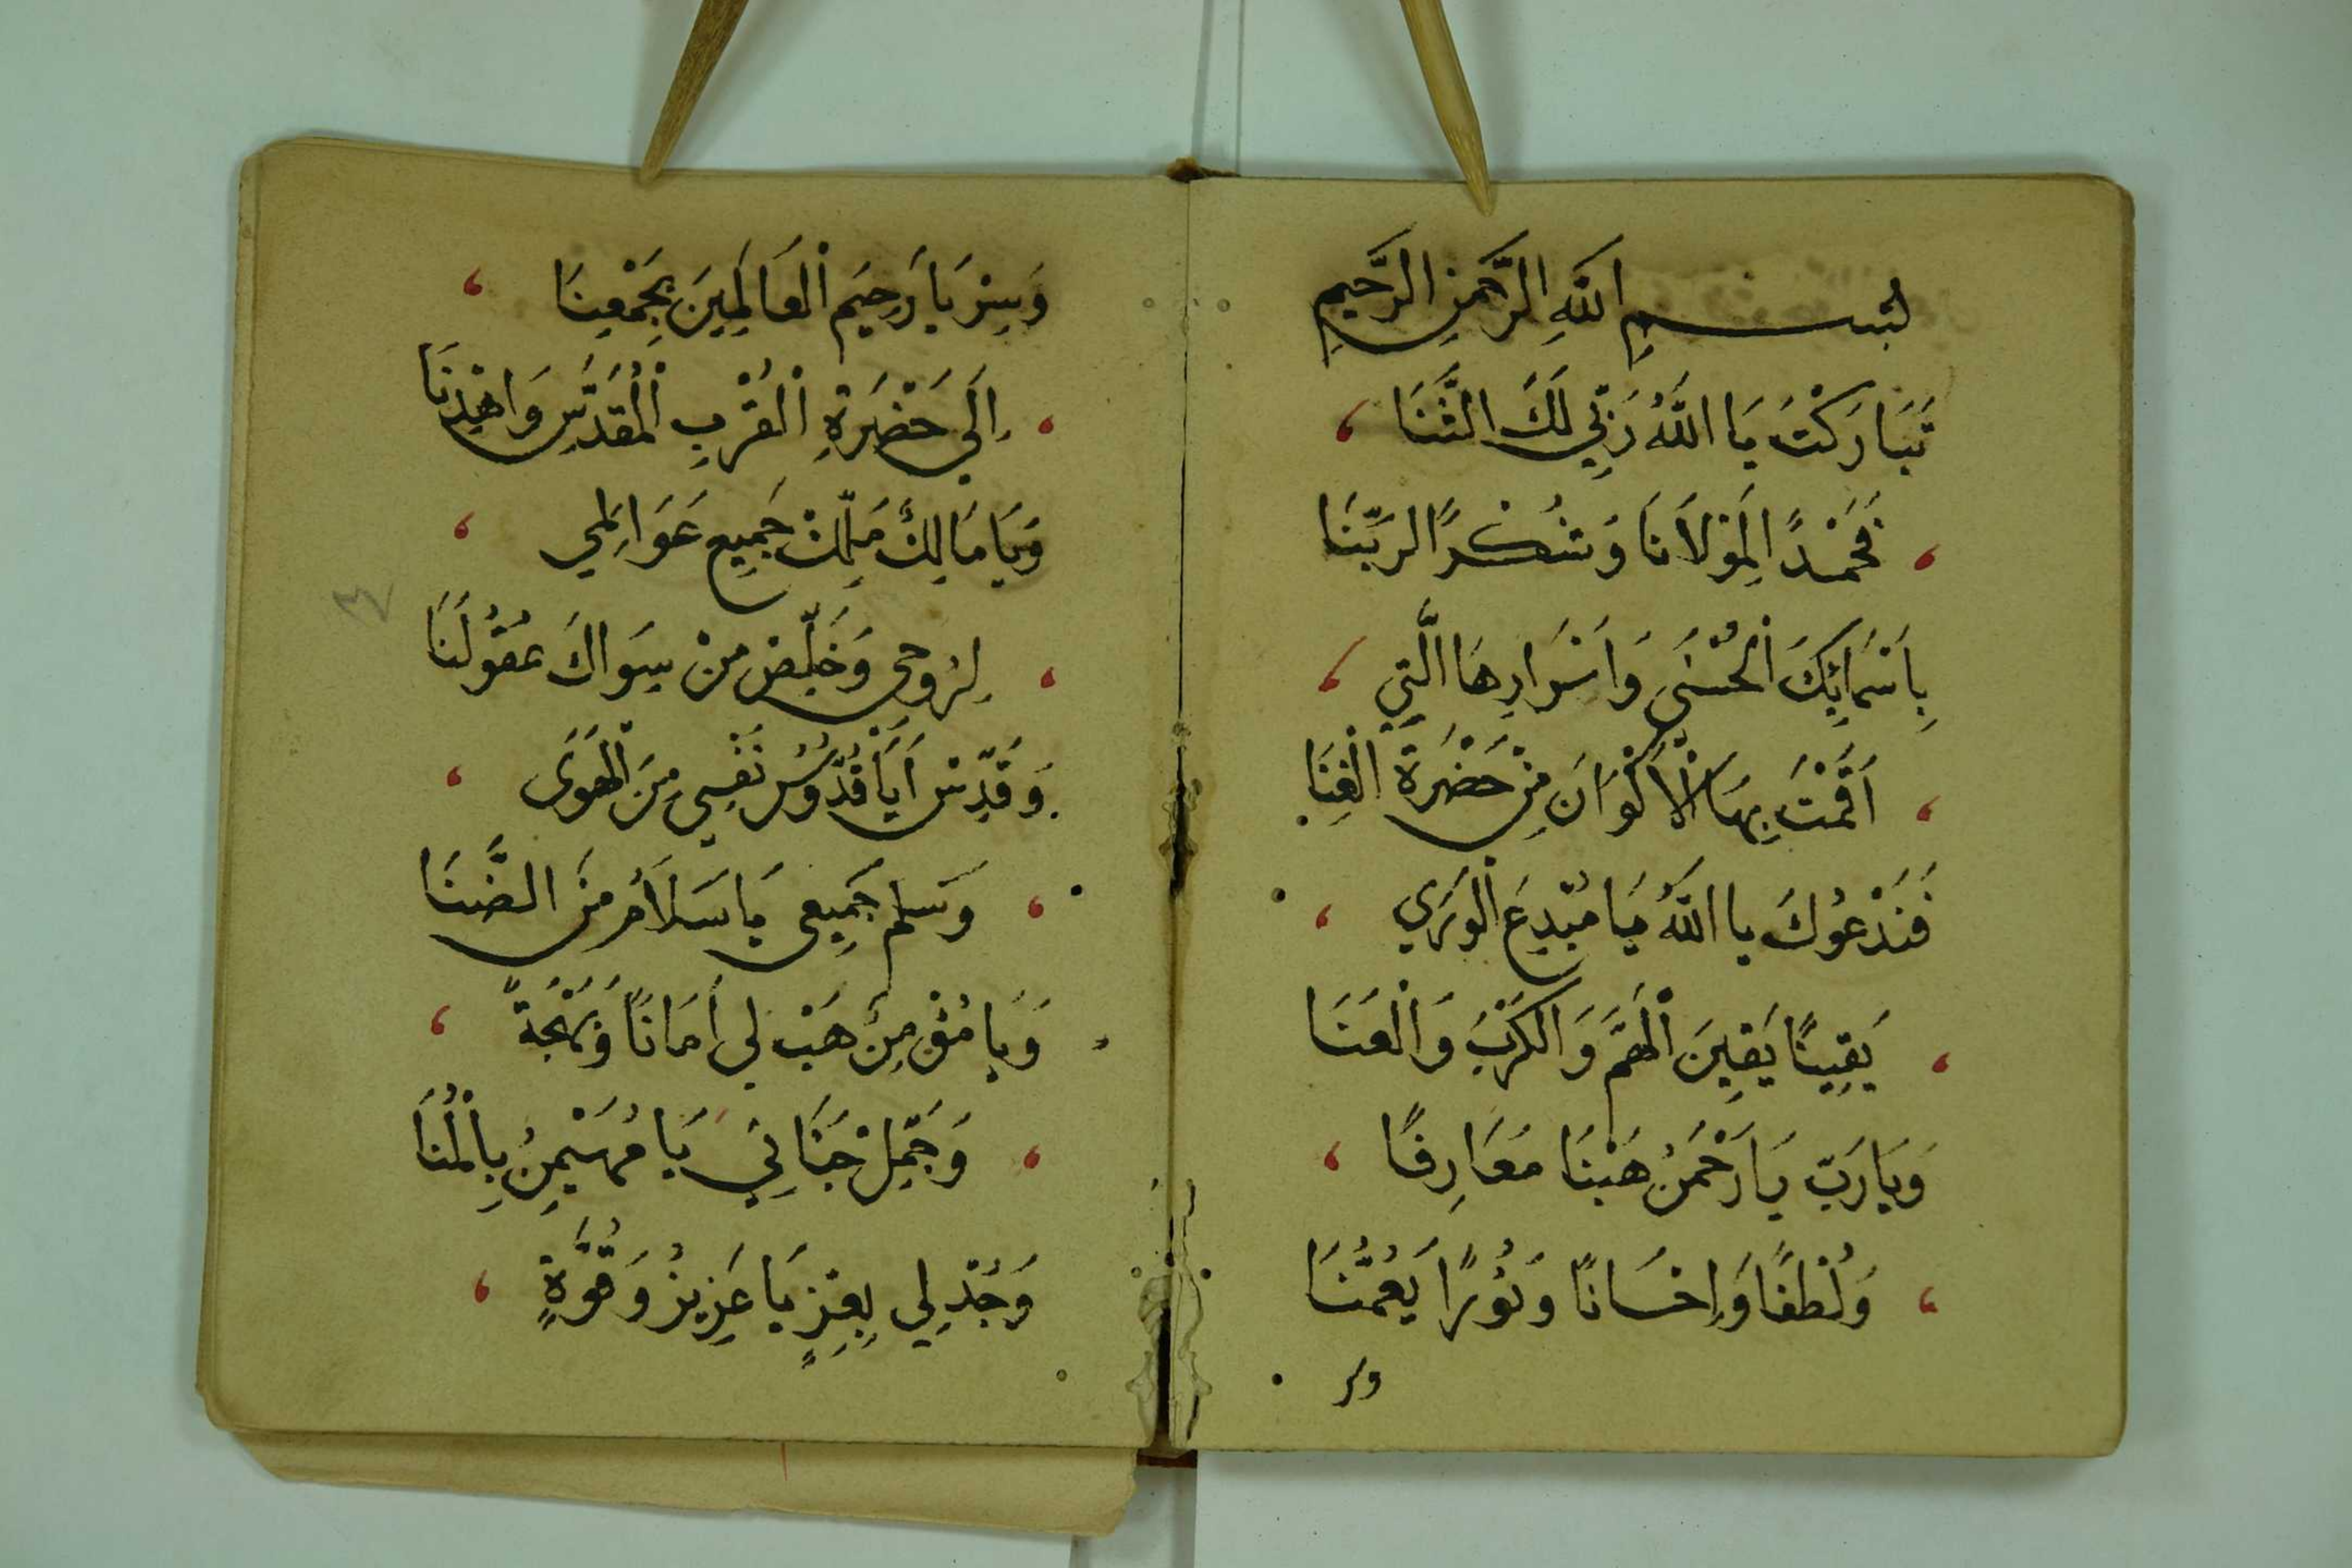 بِسْمِ اللَّهِ الرَّحْمَنِ الرَّحِيمِ
تَبَارَكْتَ يَا اللَّهُ رَبِّي لَكَ الثَّنَا
فَحَمْدًا لِمَوْلَانَا وَشُكْرًا لِرَبِّنَا
بِاَسْمَائِكَ الْحُسْنَى وَاَسْرَارِهَا الَّتِي
اَقَمْتَ بِهَا الْاَكْوَانَ مِنْ حَضْرَةِ الْغِنَا
فَنَدْعُوكَ يا اللَّهُ يَا مُبْدِعَ الْوَرَي
يَقِينًا يَقِينَ الْهَمَّ وَالْكَرْبَ وَالْعَنَا
وَيَا رَبِّ يَا رَحْمَنُ هَبْنَا مَعَارِفًا
وَلُطْفًا وَاِحْسَانًا وَنُورًا يَعُمُّنَا
وسر
وَسِرْ يَا رَحِيمَ الْعَالَمِينَ بِجَمْعِنَا
اِلَى حَضْرَةِ الْقُرْبِ الْمُقَدَّسِ وَاهْدِنَا
وَيَا مَالِكُ مَلِّكْ جَمِيعَ عَوَالِمِي
لِرُوحِي وَخَلِّصْ مِنْ سِوَاكَ عُقُولَنَا
وَقَدِّسْ اَيَا قُدُّوسُ نَفْسِي مِنَ الْهَوَى
وَسَلِّمْ جَمِيعِي يَا سَلَامُ مِنَ الضَّنَا
وَيَا مُؤْمِنُ هَبْ لِي اَمَانًا وَبَهْجَةً
وَجَمِّلْ جَنَانِي يَا مُهَيْمِنُ بِالْمُنَا
وَجُدْ لِي بِعِزٍّ يَا عَزِيزُ وَقُوَّةٍ